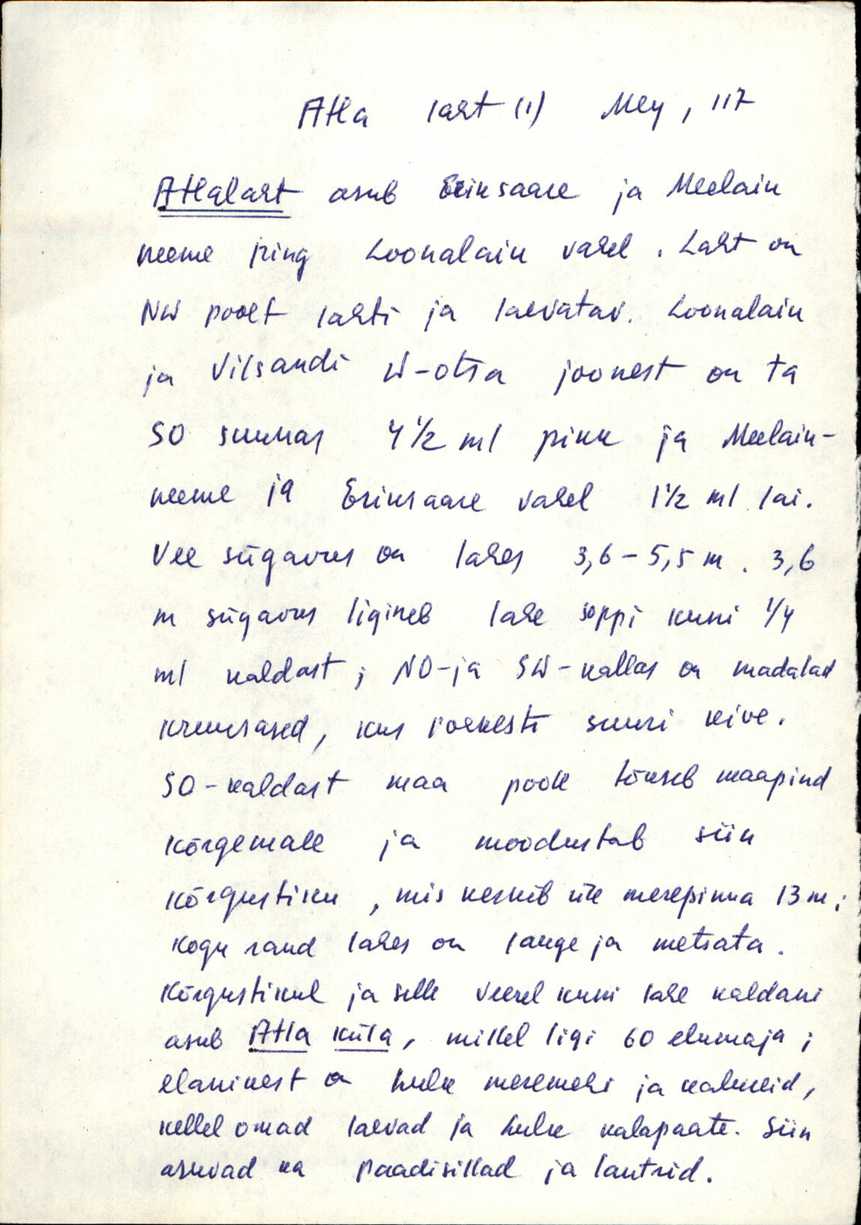 Atla laht (1) Mey, 117
Atlalaht asub Eeinsaare ja Meelain
neeme ning Loonalain vahel. Laht on
NW poolt lahti ja laevatav. Loonalain
ja Vilsandi W-otsa joonest on ta
SO suunas 4 1/2 ml pikk ja Meelain-
neeme ja Erinsaare vahel 1 1/2 ml lai.
Vee sügavus on lahes 3,6-5,5 m. 3,6
m sügavus ligineb lahe soppi kuni 1/4
ml kaldast; NO-ja SW-kallas on madalad
kruusased, kus rohkesti suuri kive.
SO-kaldast maa poole tõuseb maapind
kõrgemale ja moodustab siin
kõrgustiku, mis kerkib üle merepinna 13 m;
kogu rand lahes on lauge ja metsata.
Kõrgustikul ja selle veerel kuni lahe kaldani
asub Atla küla, millel ligi 60 elumaja;
elanikest on hulk meremehi ja kalureid,
kellel omad laevad ja hulk kalapaate. Siin
asuvad ka paadisillad ja lautrid.